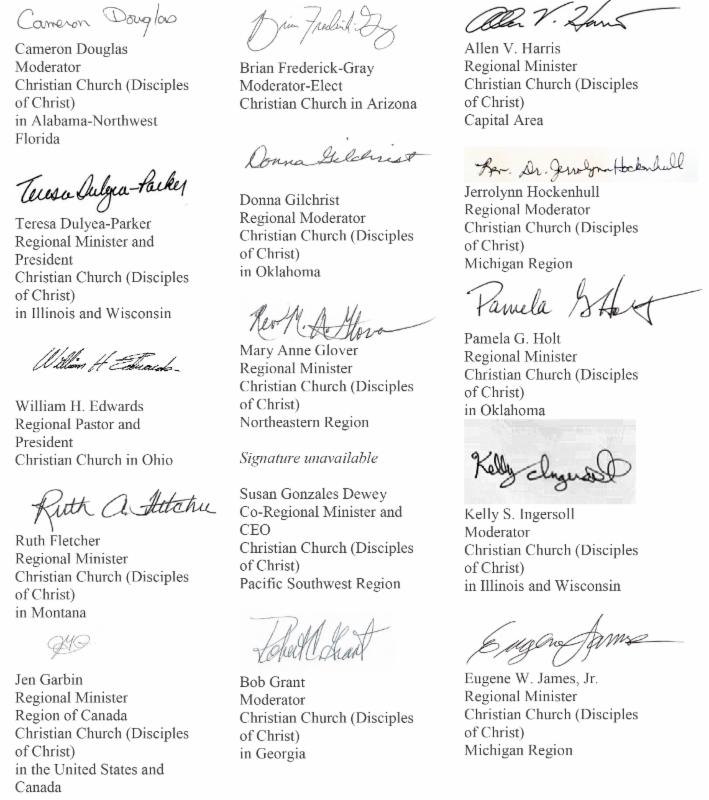 Cameron Douglas
Cameron Douglas
Moderator
Christian Church (Disciples
of Christ)
in Alabama-Northwest
Florida
Teresa Dulyea-Parker
Teresa Dulyea-Parker
Regional Minister and
President
Christian Church (Disciples
of Christ)
in Illinois and Wisconsin
William H Edwards
William H. Edwards
Regional Pastor and
President
Christian Church in Ohio
Ruth A. Fletcher
Ruth Fletcher
Regional Minister
Christian Church (Disciples
of Christ)
in Montana
Jen Garbin
Regional Minister
Region of Canada
Christian Church (Disciples
of Christ)
in the United States and
Canada
Brian Frederick-Gray
Brian Frederick-Gray
Moderator-Elect
Christian Church in Arizona
Donna Gilchrist
Donna Gilchrist
Regional Moderator
Christian Church (Disciples
of Christ)
in Oklahoma
Rev M. A. Glover
Mary Anne Glover
Regional Minister
Christian Church (Disciples
of Christ)
Northeastern Region
Signature unavailable
Susan Gonzales Dewey
Co-Regional Minister and
CEO
Christian Church (Disciples
of Christ)
Pacific Southwest Region
Robert C. Grant
Bob Grant
Moderator
Christian Church (Disciples
of Christ)
in Georgia
Allen V. Harris
Allen V. Harris
Regional Minister
Christian Church (Disciples
of Christ)
Capital Area
Rev. Dr. Jerrolynn Hockenhull
Jerrolynn Hockenhull
Regional Moderator
Christian Church (Disciples
of Christ)
Michigan Region
Pamela G Holt
Pamela G. Holt
Regional Minister
Christian Church (Disciples
of Christ)
in Oklahoma
Kelly Ingersoll
Kelly S. Ingersoll
Moderator
Christian Church (Disciples
of Christ)
in Illinois and Wisconsin
Eugene James
Eugene W. James, Jr.
Regional Minister
Christian Church (Disciples
of Christ)
Michigan Region